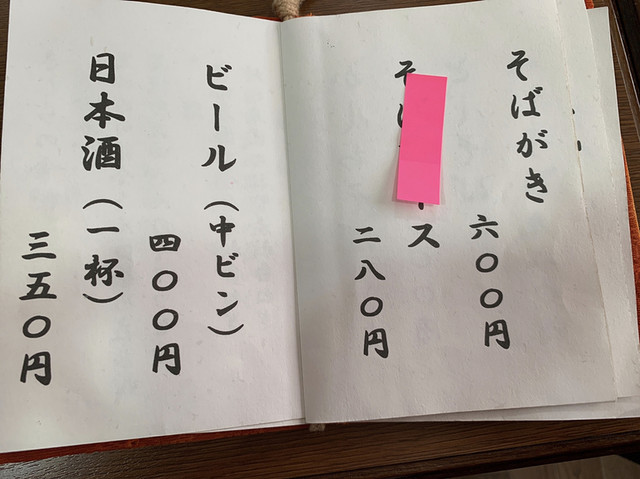 そばがき
六〇〇円
そ
ス
二八〇円
ビール（中ビン）
四〇〇円
日本酒（一杯）
三五〇円